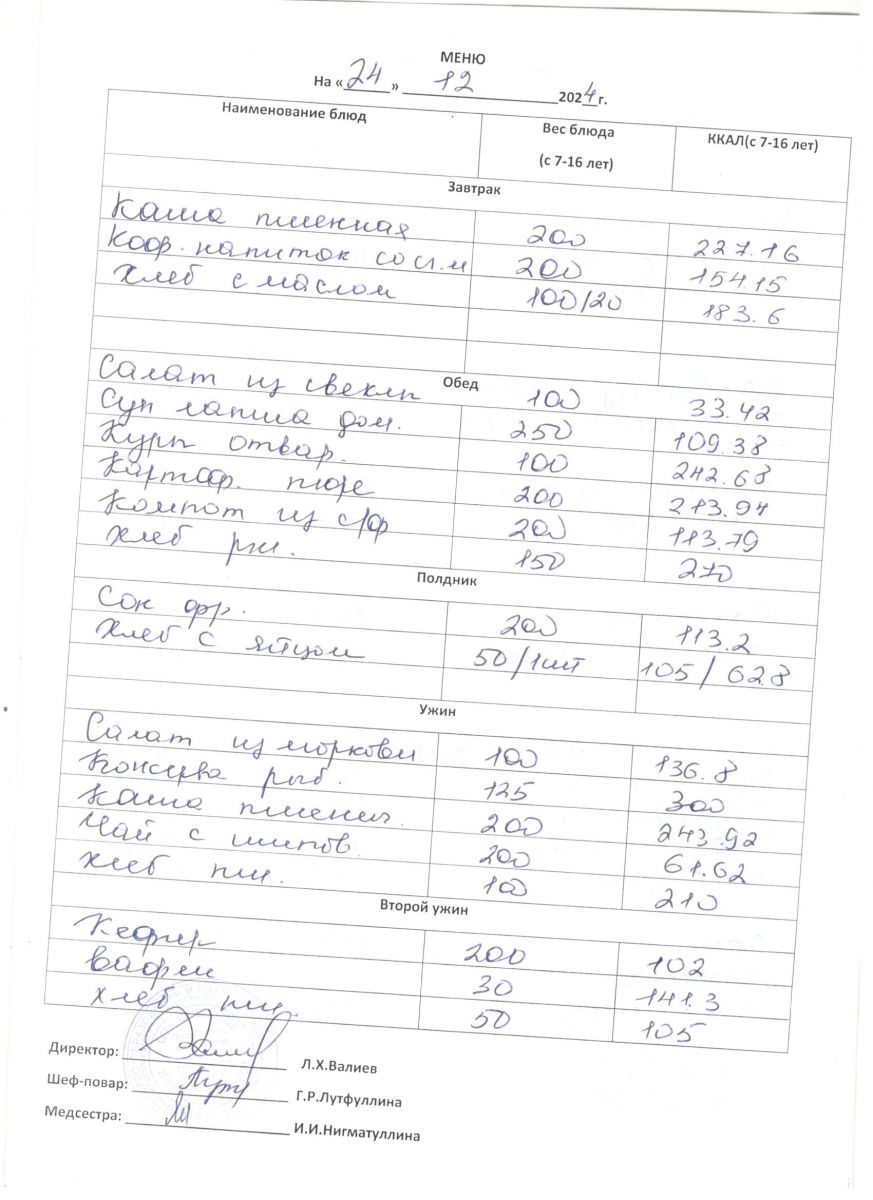 МЕНЮ
На « 24 » 12 2024 г.
Наименование блюд Вес блюда (с 7-16 лет) ККАЛ(с 7-16 лет)
Завтрак
Каша пшенная 200 227.16
Кофр. напиток со сл.м 200 154.15
Хлеб с маслом 100/20 183.6
Обед
Салат из свеклы 100 33.42
Суп лапша дом. 250 109.38
Куры отвар. 100 242.68
Картоф. пюре 200 213.94
Компот из с/ф 200 113.79
Хлеб рж. 150 270
Полдник
Сок фр. 200 113.2
Хлеб с яйцом 50/1шт 105/62.8
Ужин
Салат из моркови 100 136.8
Консерва рыб. 125 300
Каша пшенич. 200 243.92
Чай с шипов. 200 61.62
Хлеб пш. 100 210
Второй ужин
Кефир 200 102
Вафли 30 141.3
Хлеб пш. 50 105
Директор: Л.Х.Валиев
Шеф-повар: Г.Р.Лутфуллина
Медсестра: И.И.Нигматуллина